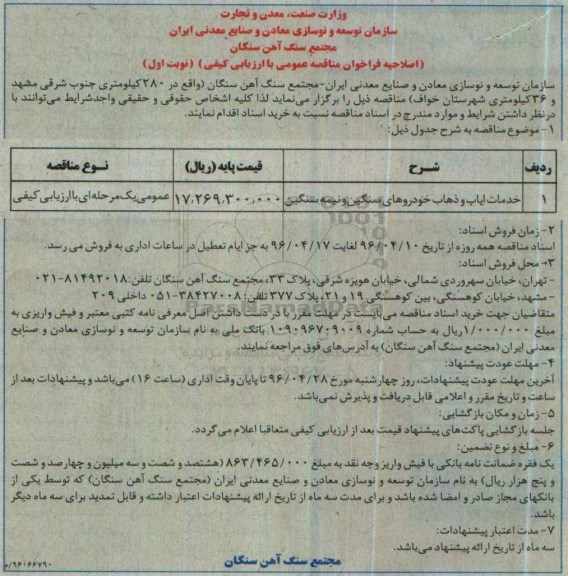 وزارت صنعت، معدن و تجارت
سازمان توسعه و نوسازی معادن و صنایع معدنی ایران
مجتمع سنگ آهن سنگان
(اصلاحیه فراخوان مناقصه عمومی با ارزیابی کیفی) (نوبت اول)
سازمان توسعه و نوسازی معادن و صنایع معدنی ایران-مجتمع سنگ آهن سنگان (واقع در ۲۸۰کیلومتری جنوب شرقی مشهد
و ۳۶کیلومتری شهرستان خواف) مناقصه ذیل را برگزار می‌نماید لذا کلیه اشخاص حقوقی و حقیقی واجدشرایط می‌توانند با
درنظر داشتن شرایط و موارد مندرج در اسناد مناقصه نسبت به خرید اسناد اقدام نمایند.
۱- موضوع مناقصه به شرح جدول ذیل:
ردیف شرح قیمت پایه (ریال) نوع مناقصه
۱ خدمات ایاب و ذهاب خودروهای سنگین و نیمه سنگین ۱۷،۲۶۹،۳۰۰،۰۰۰ عمومی یک مرحله‌ای با ارزیابی کیفی
۲- زمان فروش اسناد:
اسناد مناقصه همه روزه از تاریخ ۹۶/۰۴/۱۰ لغایت ۹۶/۰۴/۱۷ به جز ایام تعطیل در ساعات اداری به فروش می رسد.
۳- محل فروش اسناد:
- تهران، خیابان سهروردی شمالی، خیابان هویزه شرقی، پلاک ۳۳، مجتمع سنگ آهن سنگان تلفن: ۸۱۴۹۲۰۱۸-۰۲۱
- مشهد، خیابان کوهسنگی، بین کوهسنگی ۱۹ و ۲۱، پلاک ۳۷۷ تلفن: ۳۸۴۲۷۰۰۸-۰۵۱ داخلی ۲۰۹
متقاضیان جهت خرید اسناد مناقصه می‌بایست در مهلت مقرر با در دست داشتن اصل معرفی نامه کتبی معتبر و فیش واریزی به
مبلغ ۱/۰۰۰/۰۰۰ریال به حساب شماره ۰۱۰۹۰۹۶۷۰۹۰۰۹ بانک ملی به نام سازمان توسعه و نوسازی معادن و صنایع
معدنی ایران (مجتمع سنگ آهن سنگان) به آدرس‌های فوق مراجعه نمایند.
۴- مهلت عودت پیشنهاد:
آخرین مهلت عودت پیشنهادات، روز چهارشنبه مورخ ۹۶/۰۴/۲۸ تا پایان وقت اداری (ساعت ۱۶) می‌باشد و پیشنهادات بعد از
ساعت و تاریخ مقرر و اعلامی قابل دریافت و پذیرش نمی‌باشد.
۵- زمان و مکان بازگشایی:
جلسه بازگشایی پاکت‌های پیشنهاد قیمت بعد از ارزیابی کیفی متعاقبا اعلام می‌گردد.
۶- مبلغ و نوع تضمین:
یک فقره ضمانت نامه بانکی یا فیش واریز وجه نقد به مبلغ ۸۶۳/۴۶۵/۰۰۰ (هشتصد و شصت و سه میلیون و چهارصد و شصت
و پنج هزار ریال) به نام سازمان توسعه و نوسازی معادن و صنایع معدنی ایران (مجتمع سنگ آهن سنگان) که توسط یکی از
بانکهای مجاز صادر و امضا شده باشد و برای مدت سه ماه از تاریخ ارائه پیشنهادات اعتبار داشته و قابل تمدید برای سه ماه دیگر
باشد.
۷- مدت اعتبار پیشنهادات:
سه ماه از تاریخ ارائه پیشنهاد می‌باشد.
مجتمع سنگ آهن سنگان
۹۶۰۶۶۷۹۰/م